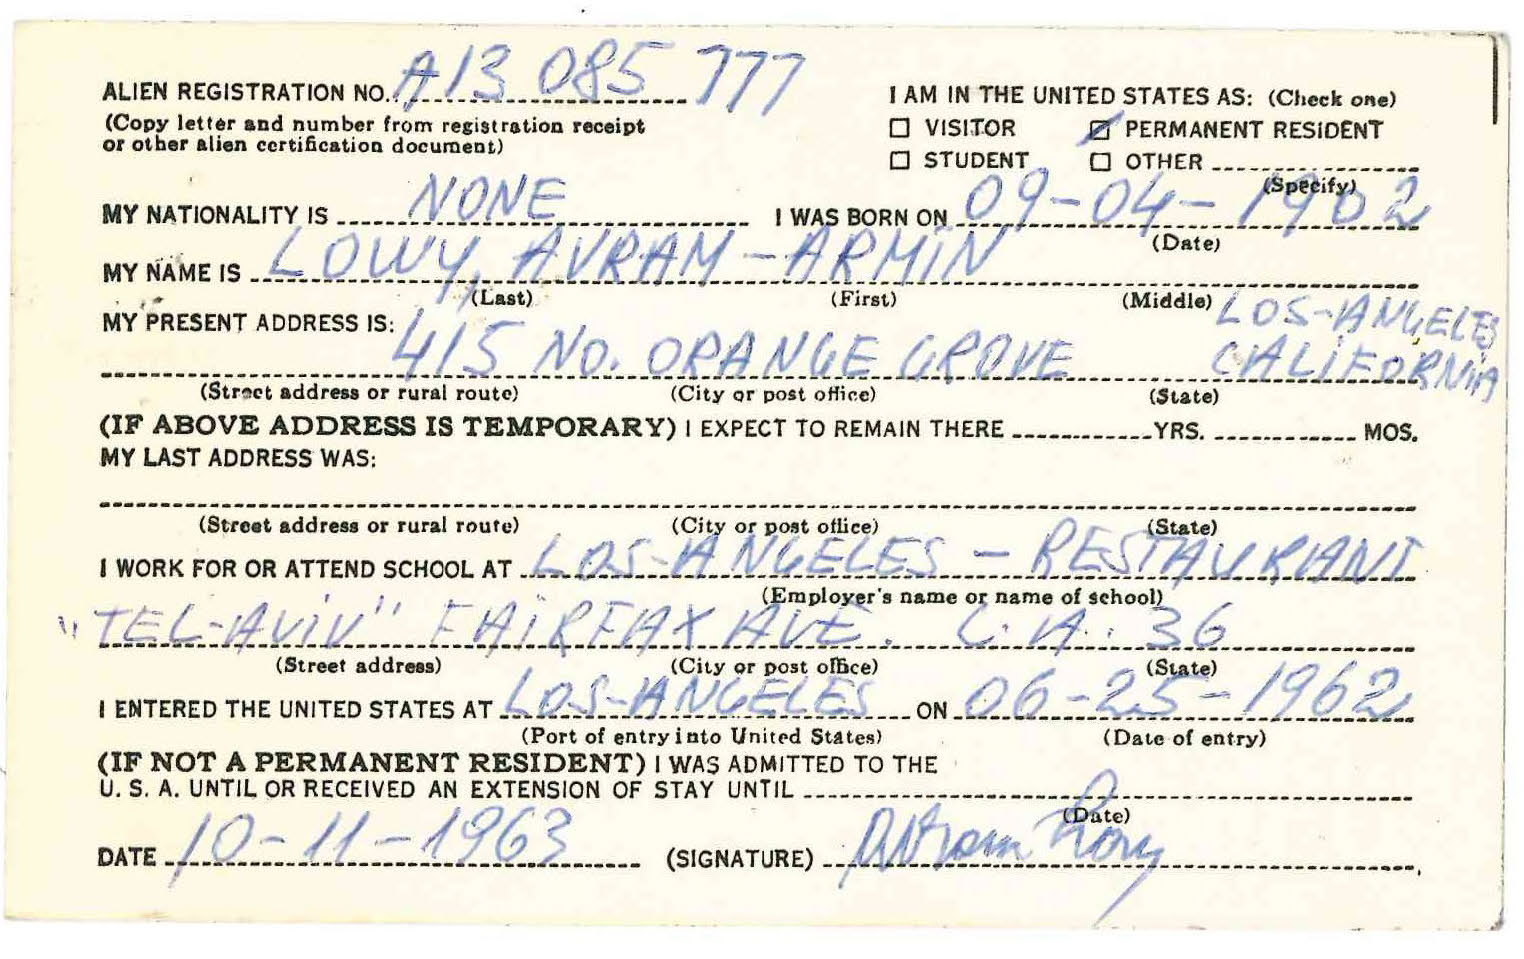 ALIEN REGISTRATION NO. A13 085 777
(Copy letter and number from registration receipt
or other alien certification document)
I AM IN THE UNITED STATES AS: (Check one)
☐ VISITOR ☑ PERMANENT RESIDENT
☐ STUDENT ☐ OTHER
(Specify)
MY NATIONALITY IS NONE I WAS BORN ON 09-04-1902
(Date)
MY NAME IS LOWY, AVRAM-ARMIN
(Last) (First) (Middle)
MY PRESENT ADDRESS IS: LOS-ANGELES
415 NO. ORANGE GROVE CALIFORNIA
(Street address or rural route) (City or post office) (State)
(IF ABOVE ADDRESS IS TEMPORARY) I EXPECT TO REMAIN THERE YRS. MOS.
MY LAST ADDRESS WAS:
(Street address or rural route) (City or post office) (State)
I WORK FOR OR ATTEND SCHOOL AT LOS-ANGELES - RESTAURIANT
(Employer's name or name of school)
"TEL-AVIV" FAIRFAX AVE. L. A. 36
(Street address) (City or post office) (State)
I ENTERED THE UNITED STATES AT LOS-ANGELES ON 06-25-1962
(Port of entry into United States) (Date of entry)
(IF NOT A PERMANENT RESIDENT) I WAS ADMITTED TO THE
U. S. A. UNTIL OR RECEIVED AN EXTENSION OF STAY UNTIL
(Date)
DATE 10-11-1963 (SIGNATURE)